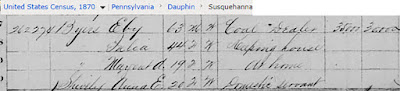 United States Census, 1870 Pennsylvania Dauphin Susquehanna
262 274 Byers Eby 63 m W Coal Dealer
44 F W Keeping house
Margaret A. 19 F W At home
Anna E. 20 F W Domestic Servant